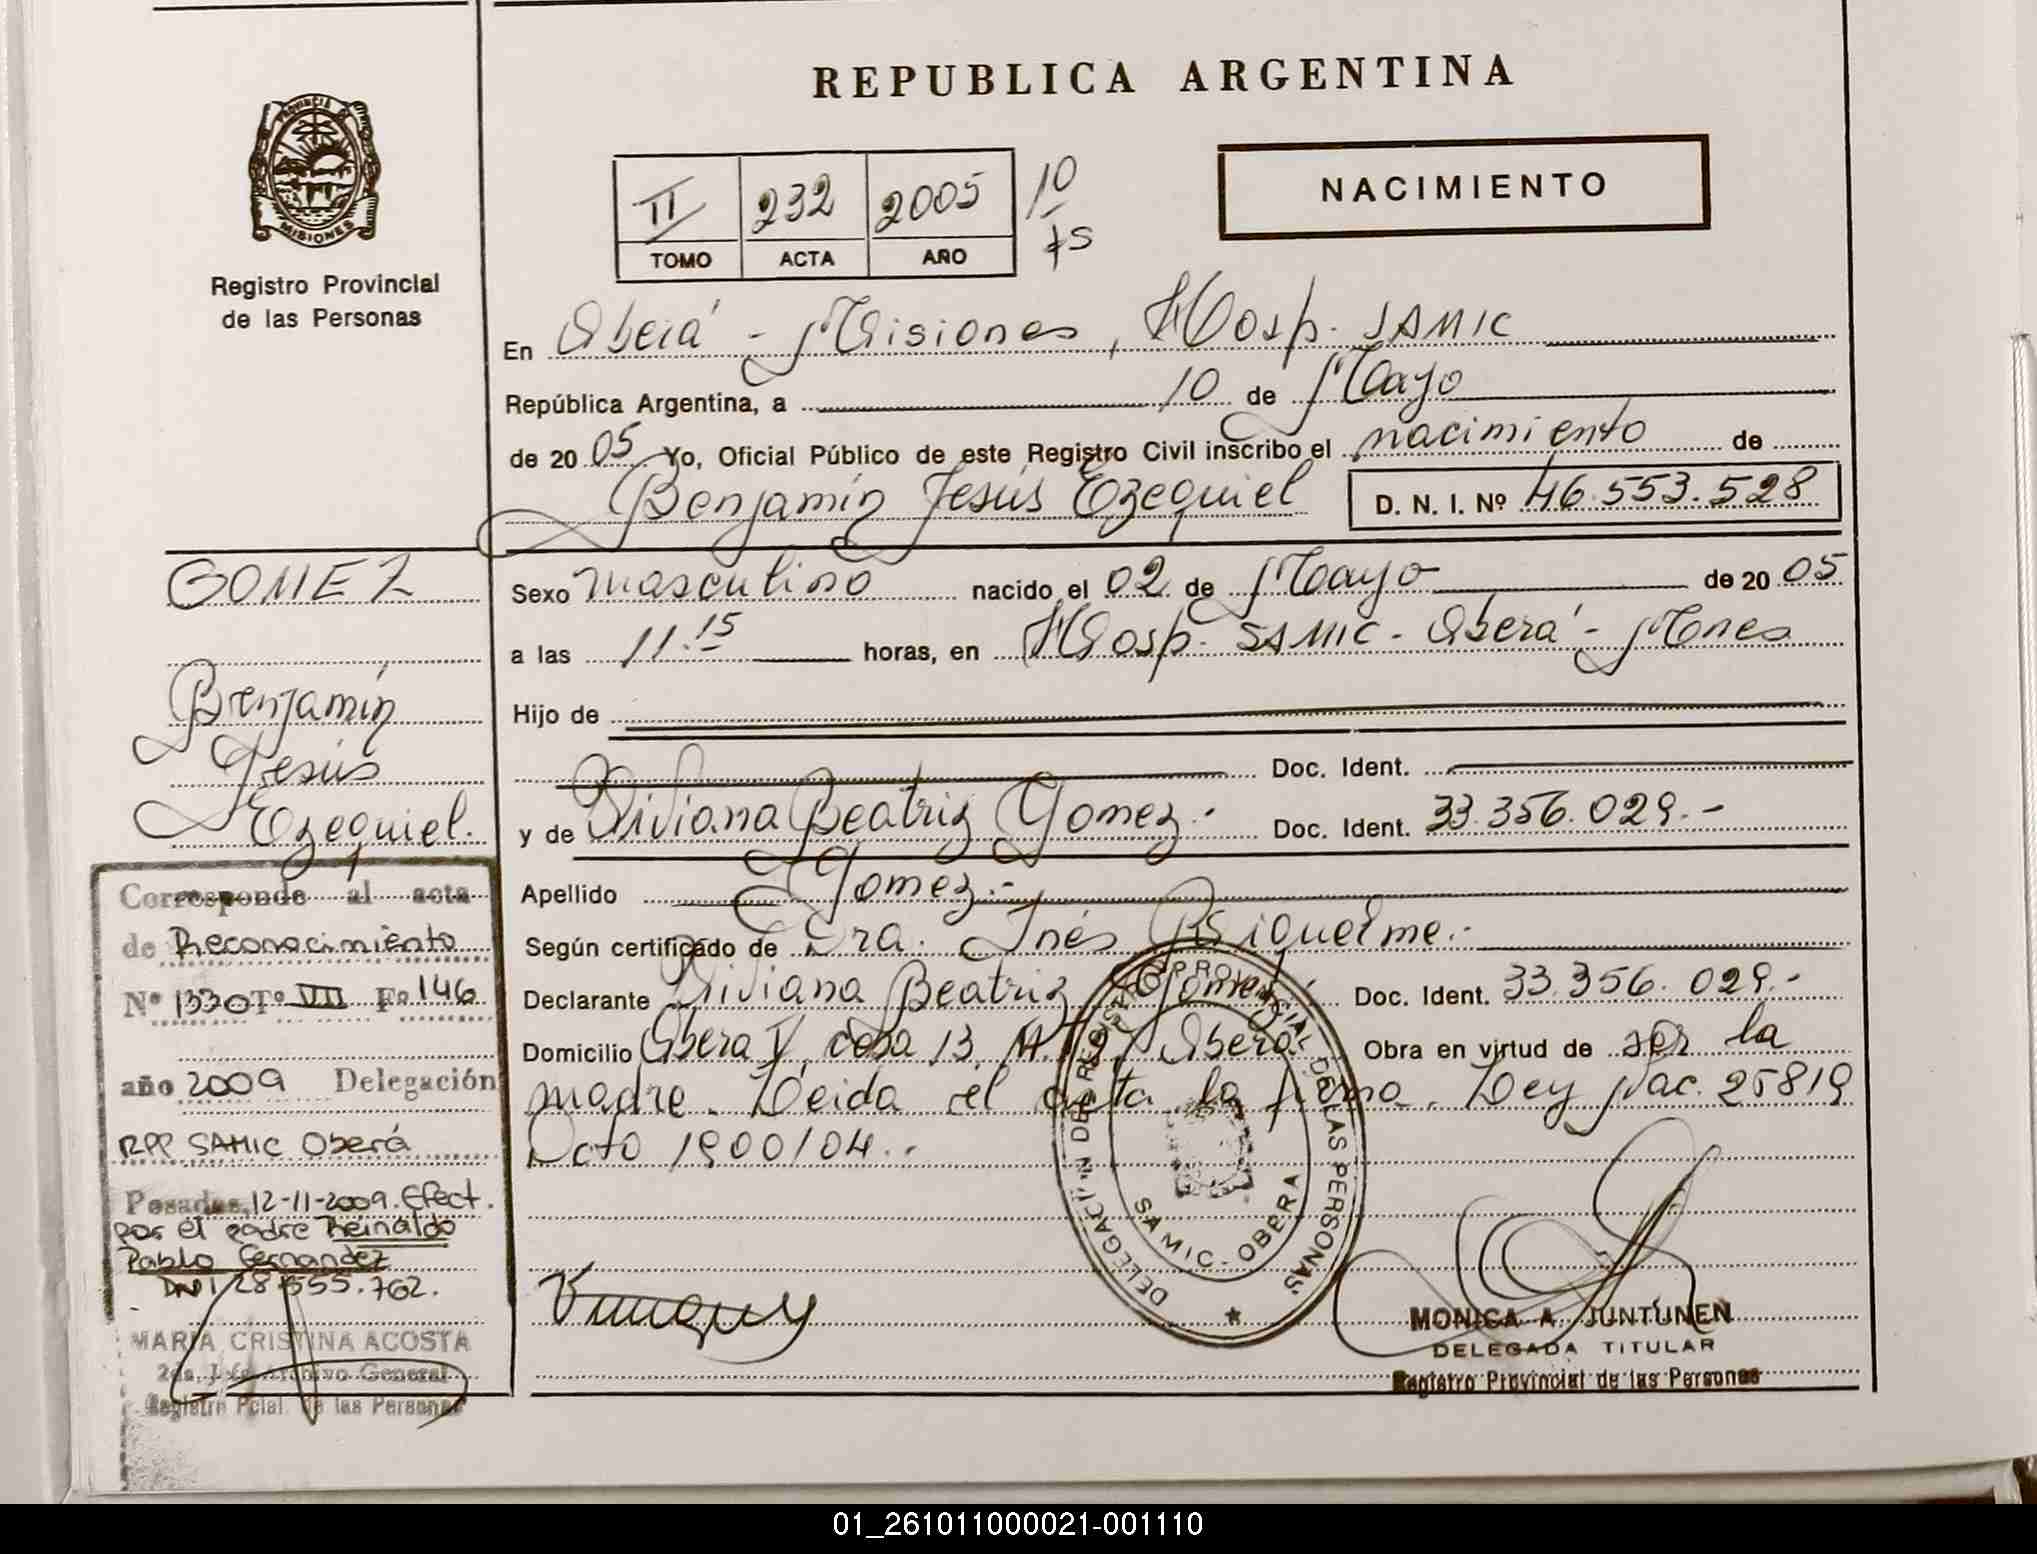 REPUBLICA ARGENTINA
PROVINCIA
MISIONES
Registro Provincial
de las Personas
II 232 2005 10
TOMO ACTA AÑO
NACIMIENTO
En Oberá - Misiones, Hosp. SAMIC
República Argentina, a 10 de Mayo
de 2005 Yo, Oficial Público de este Registro Civil inscribo el nacimiento de
Benjamín Jesús Ezequiel D. N. I. Nº 46.553.528
GOMEZ
Benjamín
Jesús
Ezequiel.
Sexo masculino nacido el 02 de Mayo de 2005
a las 11.15 horas, en Hosp. SAMIC - Oberá - Mnes
Hijo de
Doc. Ident.
y de Viviana Beatriz Gomez.- Doc. Ident. 33.356.029.-
Apellido Gomez.-
Según certificado de Dra. Inés Riquelme.-
Declarante Viviana Beatriz Gomez Doc. Ident. 33.356.029.-
Domicilio Oberá V, casa 13 Oberá Obra en virtud de ser la
madre. Leida el acta la firma. Ley Nac. 25819
Dcto 1900/04.-
Corresponde al acta
de Reconocimiento
Nº 1330 Tº VII Fº 146
año 2009 Delegación
RPP SAMIC Oberá
Posadas, 12-11-2009. Efect.
por el padre Reinaldo
Pablo Fernandez
DNI 28.555.762.
MARIA CRISTINA ACOSTA
2da. Jefe Archivo General
Registro Pcial. de las Personas
DELEGACIÓN DEL REGISTRO PROVINCIAL DE LAS PERSONAS
SAMIC - OBERA
MONICA A. JUNTUNEN
DELEGADA TITULAR
Registro Provincial de las Personas
01_261011000021-001110